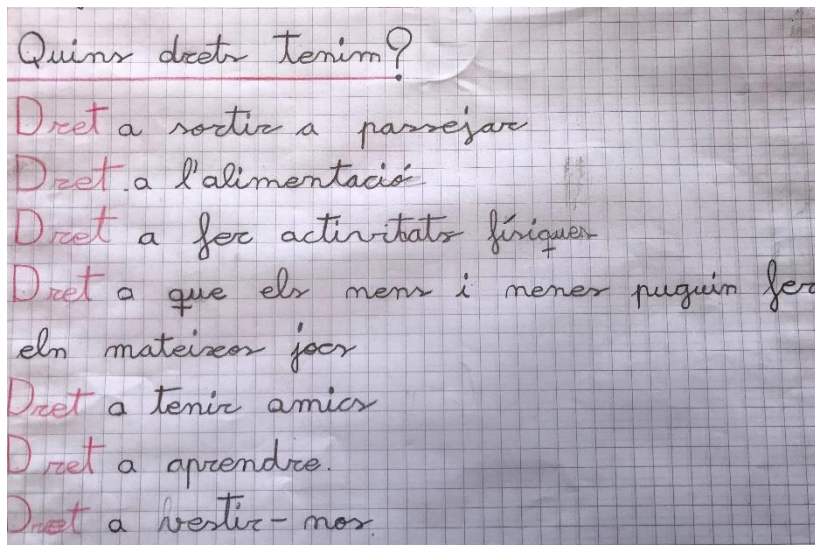 Quins drets tenim?
Dret a sortir a passejar
Dret a l'alimentació
Dret a fer activitats físiques
Dret a que els nens i nenes puguin fer
els mateixos jocs
Dret a tenir amics
Dret a aprendre.
Dret a vestir-nos.